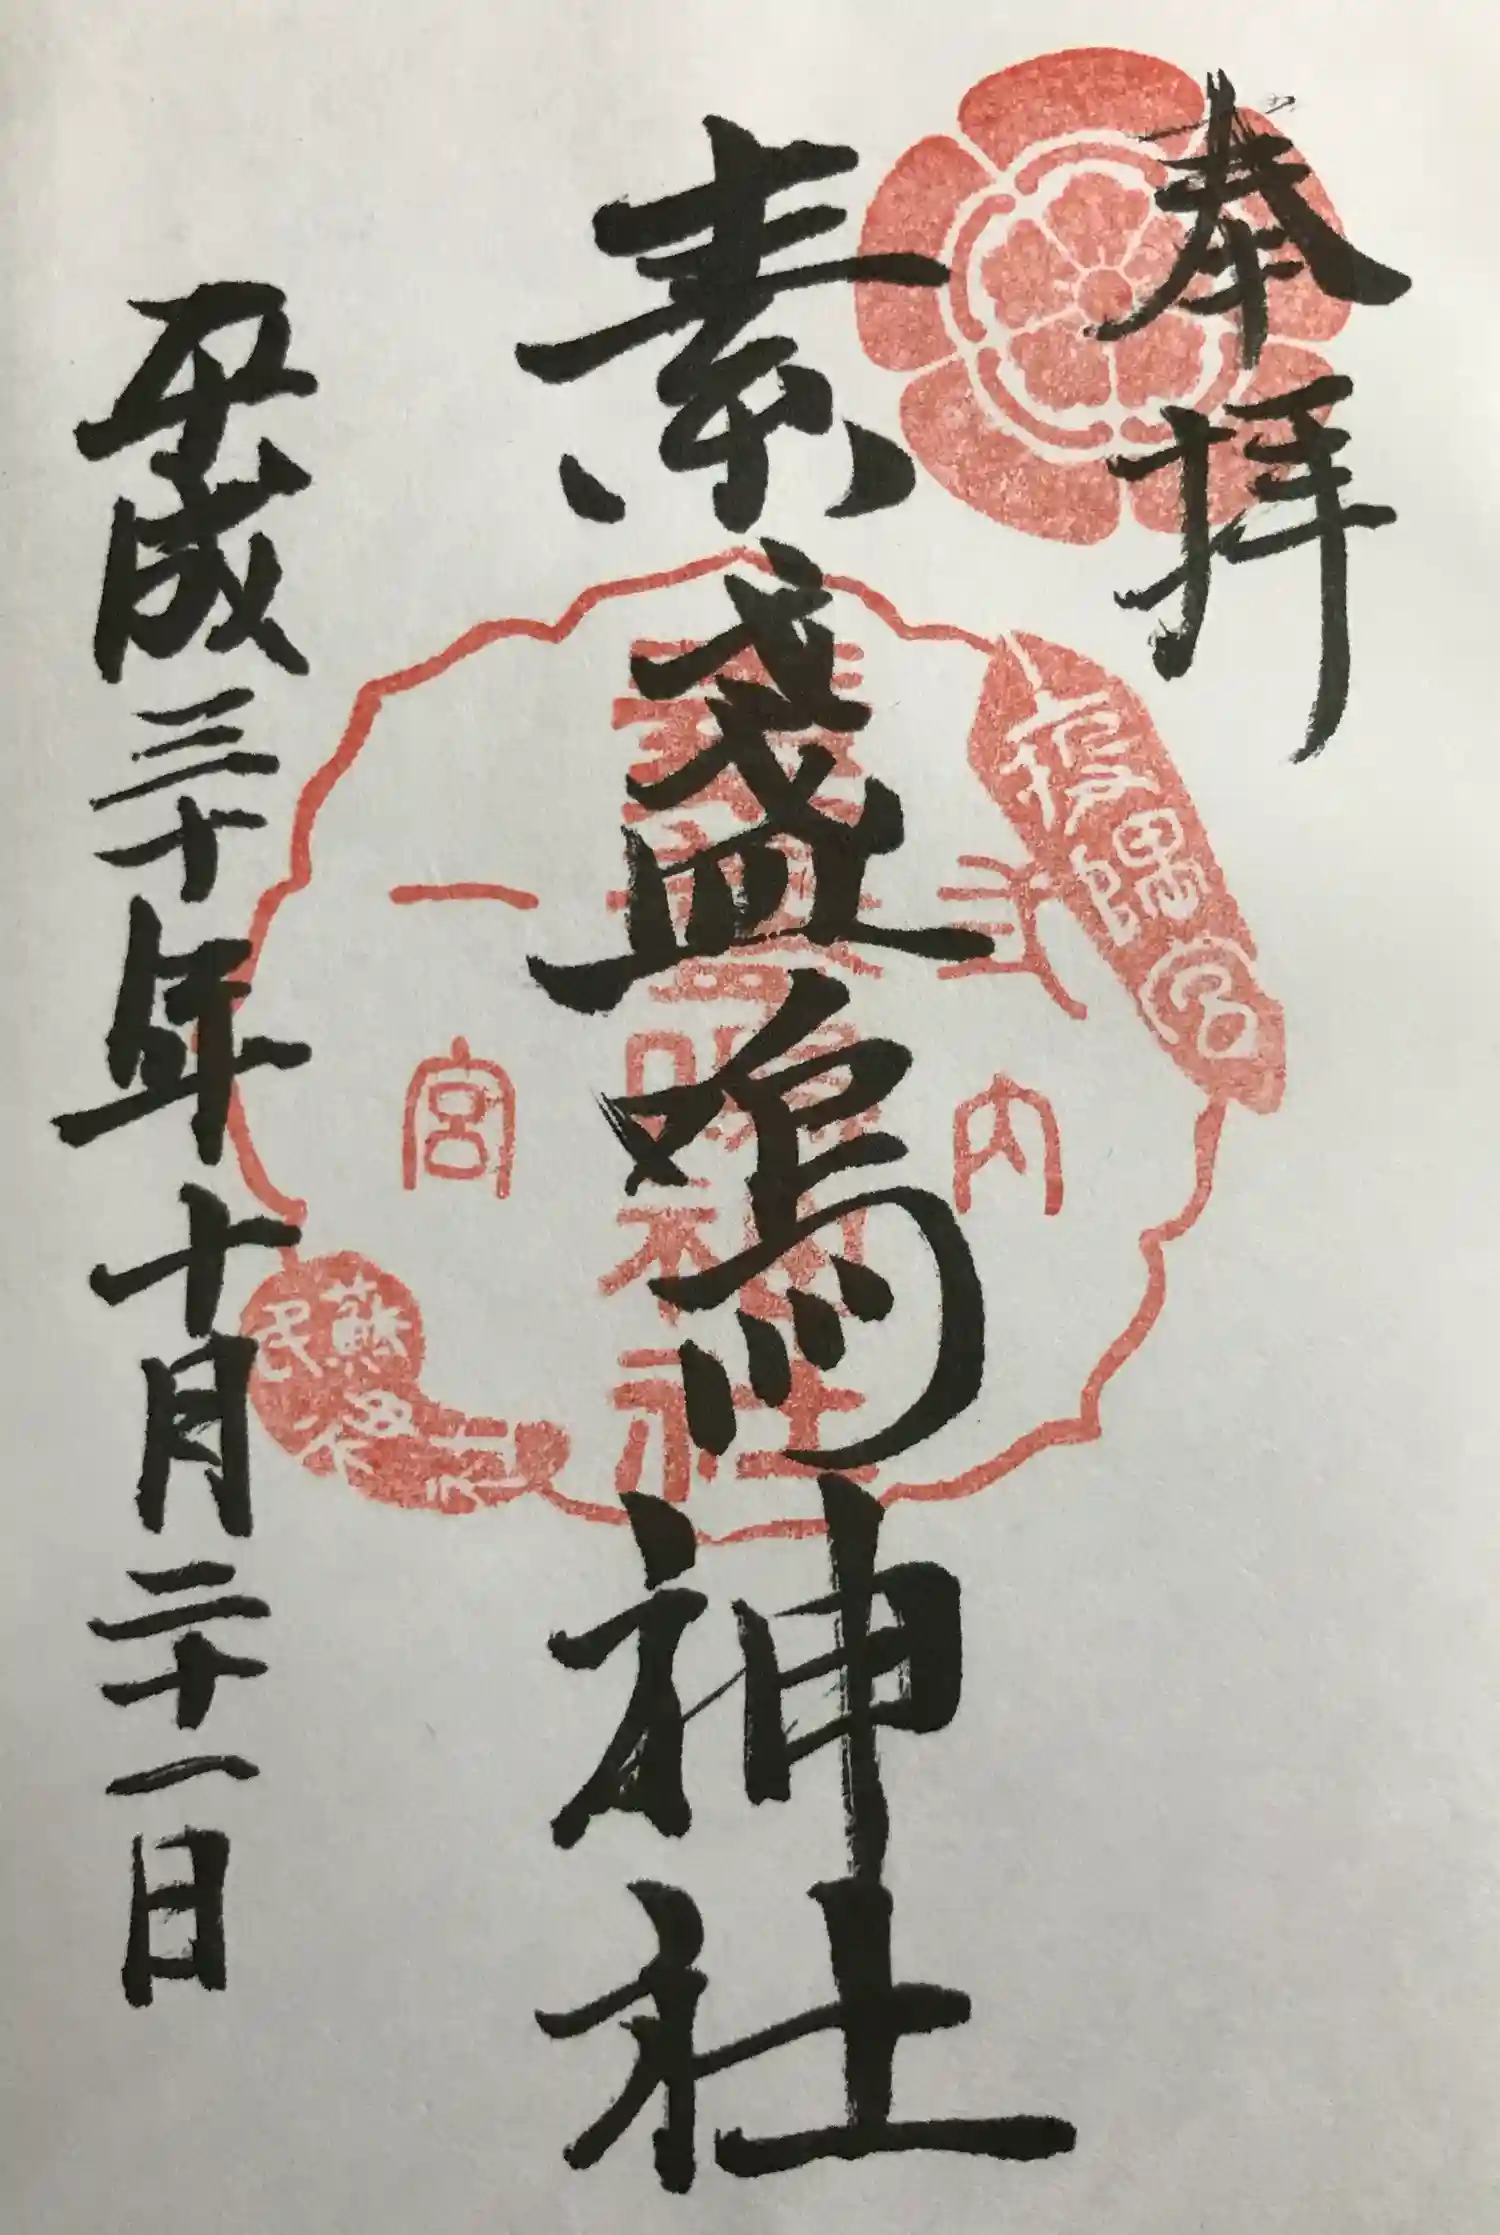 奉拝
素盞嗚神社
平成三十年十月二十一日
疫隅宮
式内
素盞嗚神社
一宮